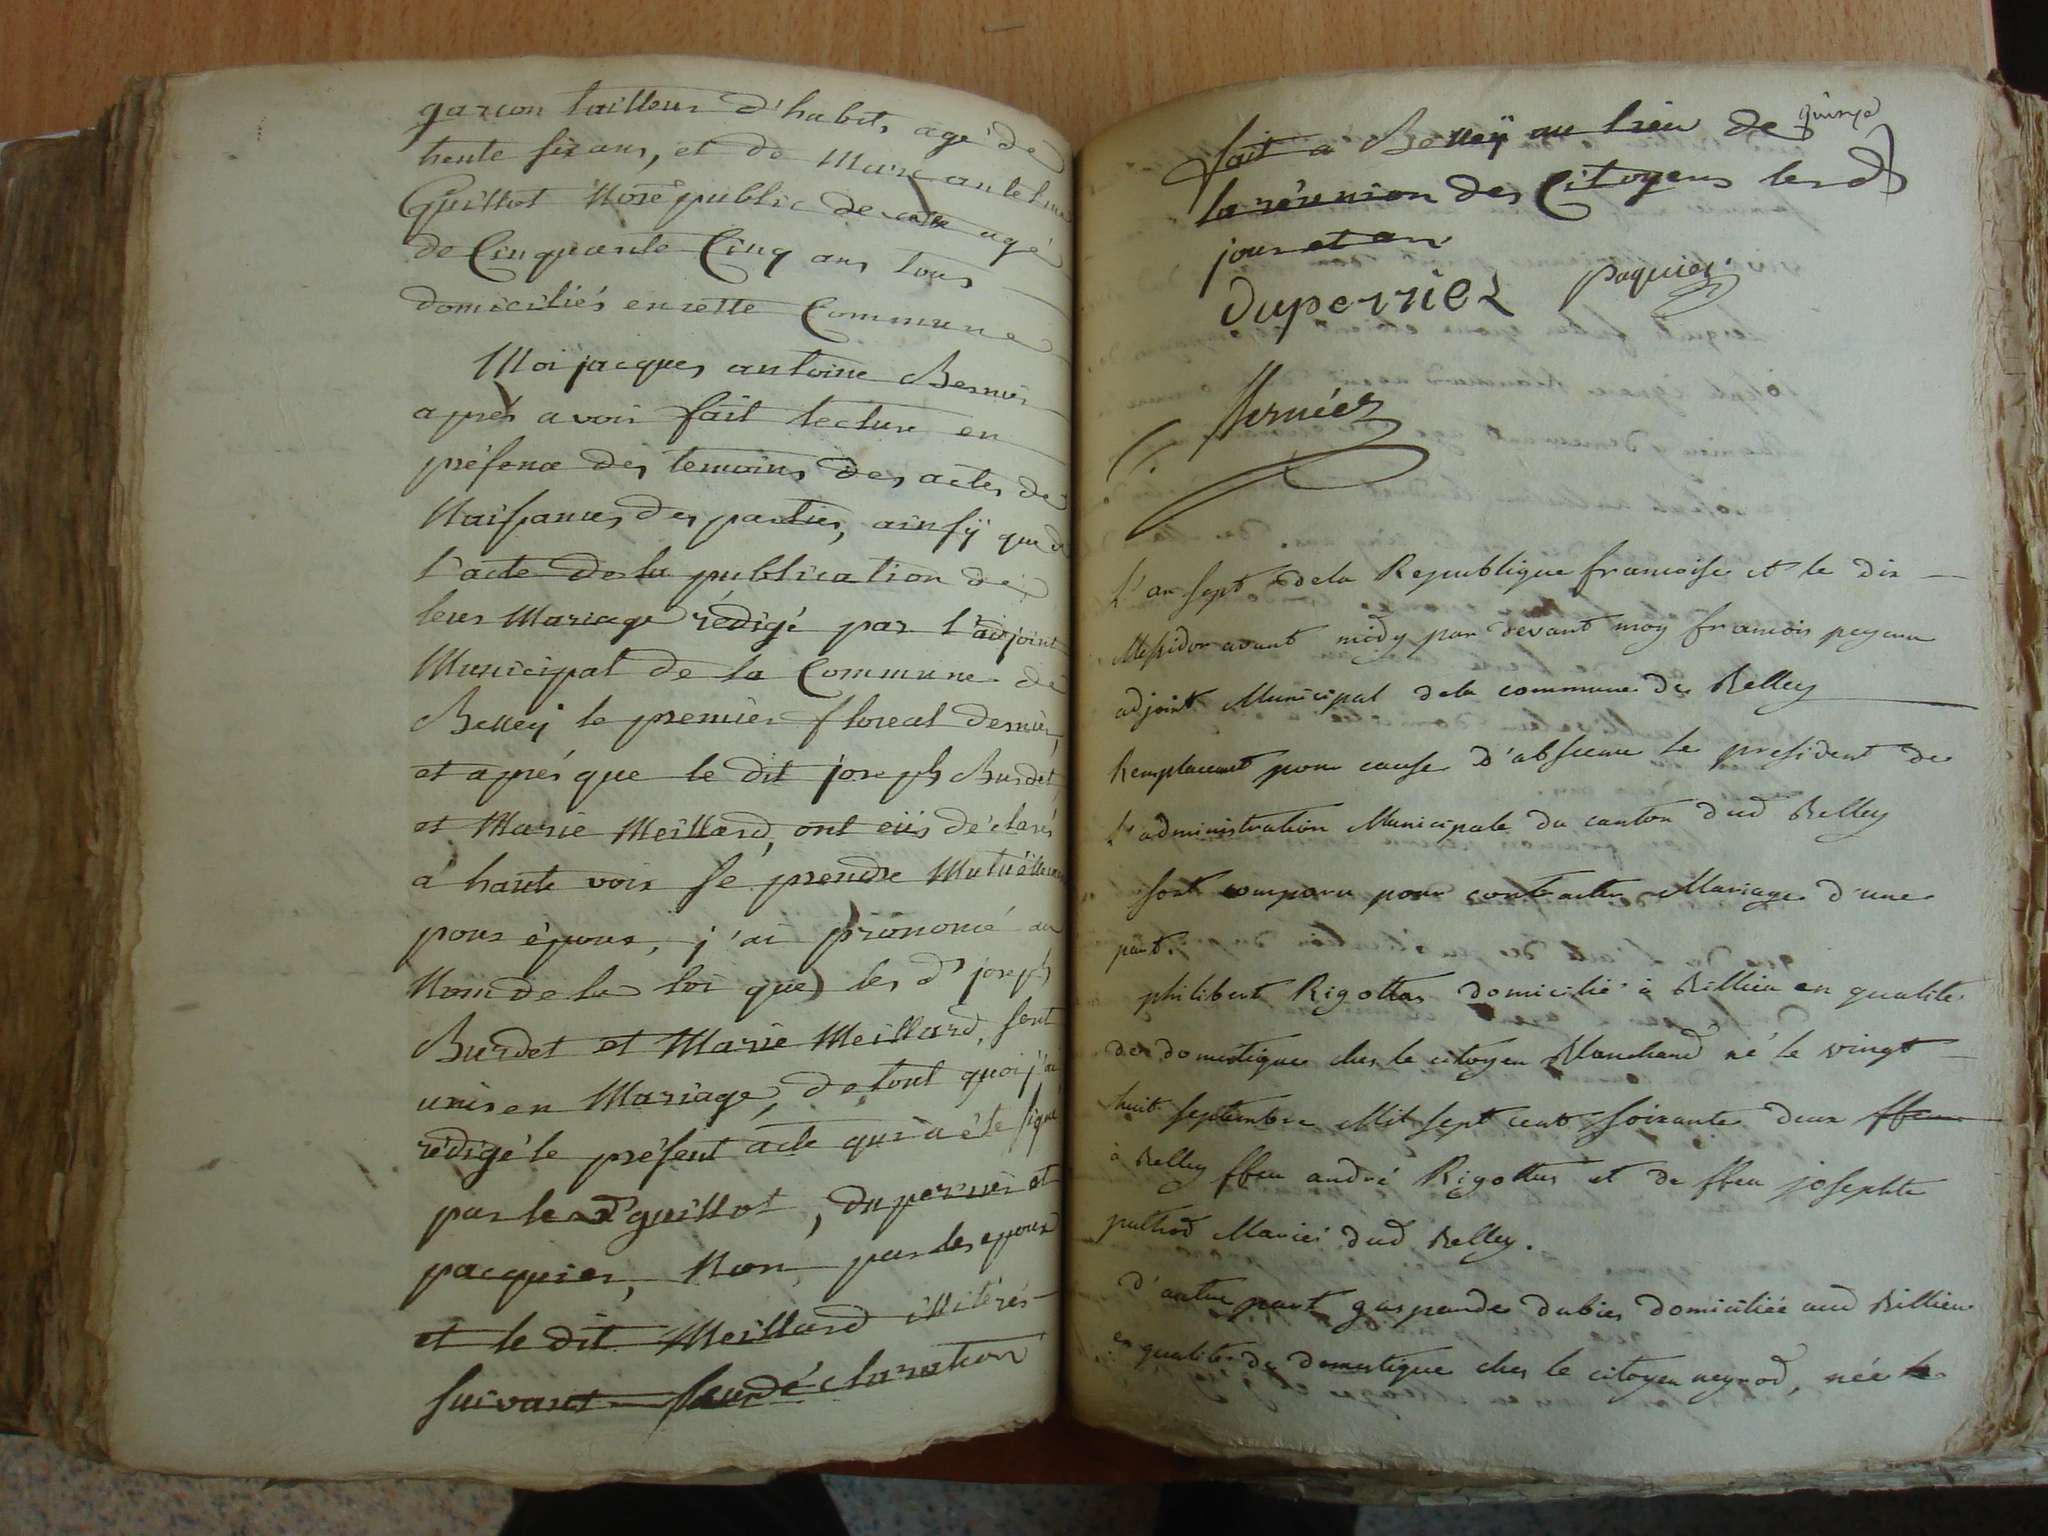 garçon tailleur d'habits agé de
trente six ans, et de Marc anthelme
Guillot Nore public de agé
de Cinquante Cinq ans tous
domiciliés en cette Commune
Moi jacques antoine Bernier
aprés avoir fait lecture en
présence des temoins des actes de
Naissances des parties, ainsÿ que de
l'acte de la publication de
leur Mariage rédigé par l'adjoint
Municipal de la Commune de
Belley le premier floreal dernier,
et aprés que le dit joseph Burdet
et Marie Meillard, ont eüs déclarés
à haute voix se prendre Mutuéllement
pour époux, j'ai prononcé au
Nom de la loi que les ds joseph
Burdet et Marie Meillard, sont
unis en Mariage, de tout quoi j'ai
rédigé le présent acte qui a été signé
par le d guillot, duperrier et
pacquier, Non par les epoux
et le dit Meillard illitérés
suivant leur déclaration
fait a Belleÿ au lieu de quinze
la réunion des Citoyens lesd
jour et an
duperrier paquier
Bernier
L'an sept de la Republique francoise et le dix
Messidor avant midy par devant moy francois
adjoint Municipal dela commune de Belley
Remplacant pour cause d'absence le president de
L'administration Municipale du canton dud Belley
sont comparu pour contracter Mariage d'une
part.
philibert Rigottas domicilié à Billieu en qualité
de domestique ches le citoyen Blanchard né le vingt
huit septembre Mil sept cent soixante deux
à Belley ffeu andré Rigottus et de ffeu josephte
pulliod Mariés dud Belley.
d'autre part gasparde dubies domiciliée aud Billieu
en qualité de domestique ches le citoyen neyrod, née le